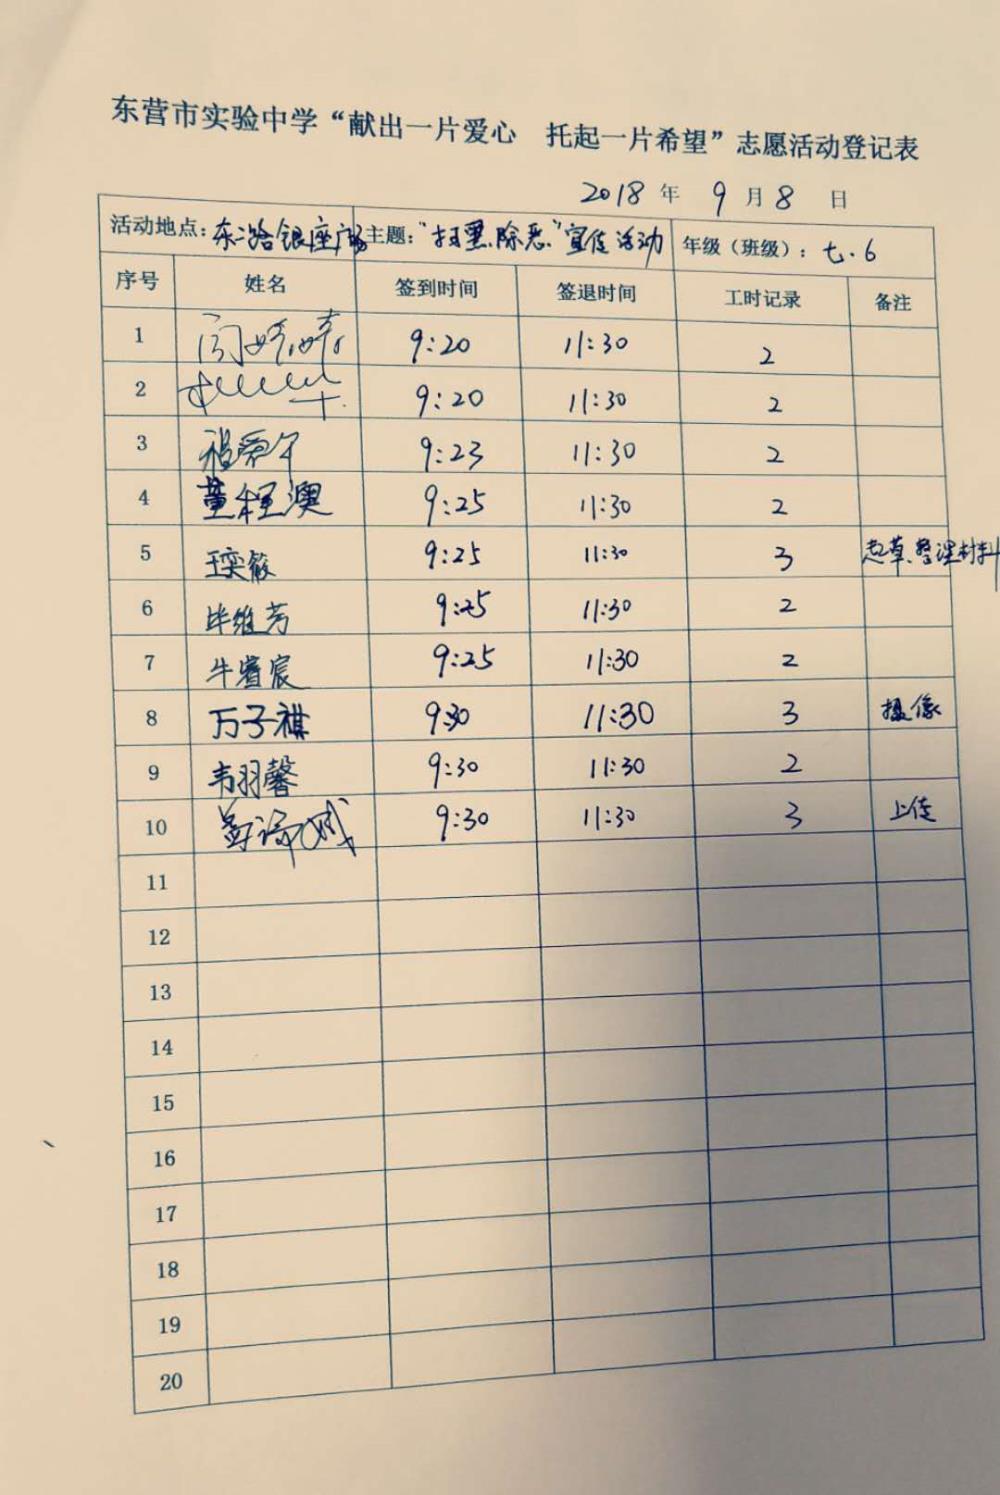 东营市实验中学“献出一片爱心 托起一片希望”志愿活动登记表
2018 年 9 月 8 日
活动地点：东二路银座广场 主题：“扫黑.除恶.”宣传活动 年级（班级）：七.6
序号 姓名 签到时间 签退时间 工时记录 备注
1 闫婷婷 9:20 11:30 2
2 9:20 11:30 2
3 9:23 11:30 2
4 董程澳 9:25 11:30 2
5 王奕筱 9:25 11:30 3 起草.整理材料
6 毕维芳 9:25 11:30 2
7 牛睿宸 9:25 11:30 2
8 万子祺 9:30 11:30 3 摄像
9 韦羽馨 9:30 11:30 2
10 9:30 11:30 3 上传
11
12
13
14
15
16
17
18
19
20